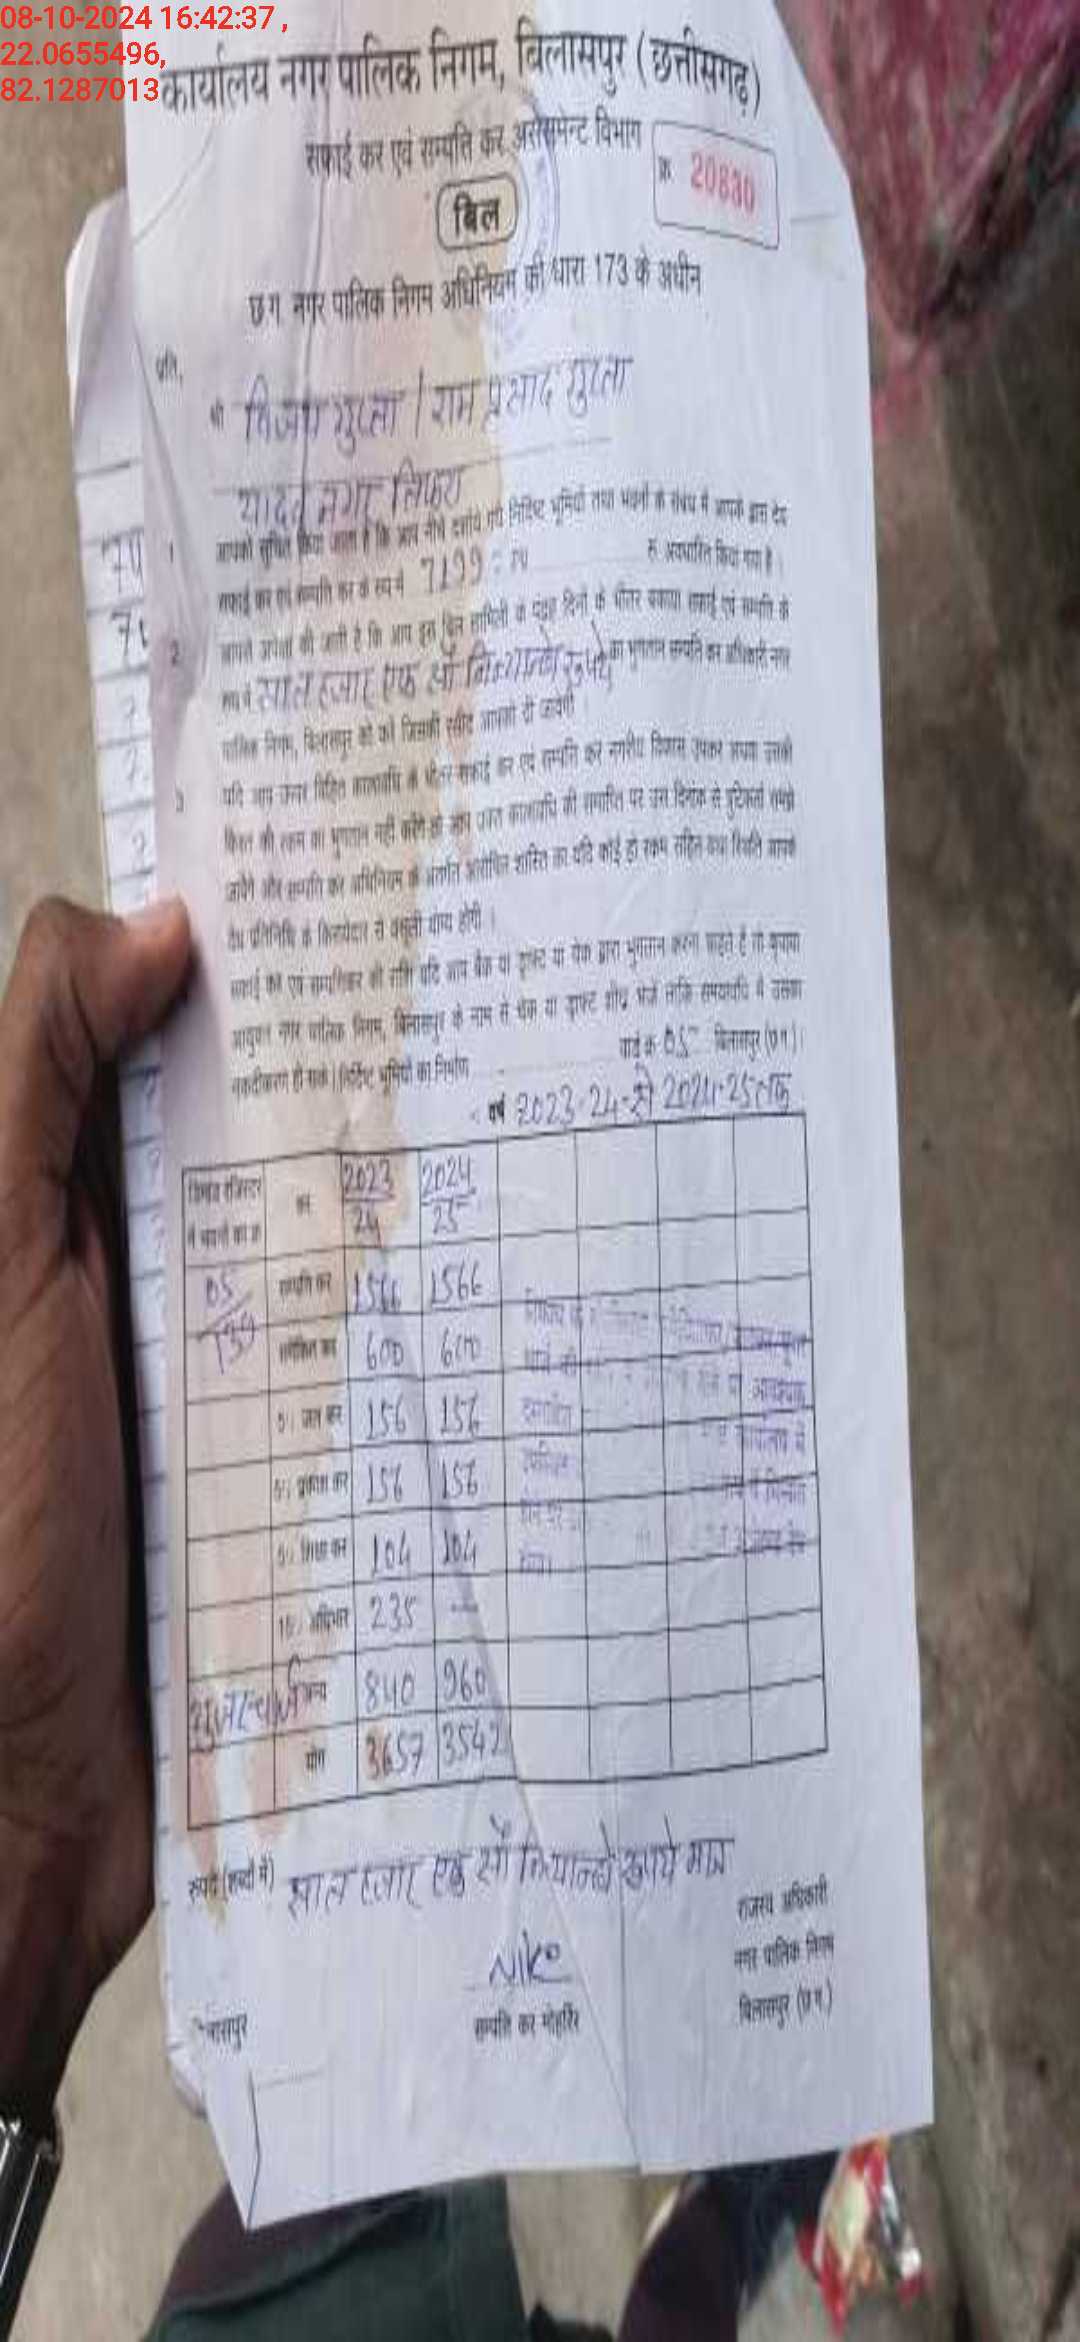 08-10-2024 16:42:37 ,
22.0655496,
82.1287013
कार्यालय नगर पालिक निगम, बिलासपुर (छत्तीसगढ़)
सफाई कर एवं सम्पति कर असेसमेन्ट विभाग
क्र 20830
बिल
छ.ग. नगर पालिक निगम अधिनियम की धारा 173 के अधीन
प्रति,
श्री विजय गुप्ता / राम प्रसाद गुप्ता
यादव नगर तिफरा
1 आपको सूचित किया जाता है कि आप नीचे दर्शाये गये निर्दिष्ट भूमियों तथा भवनों के संबंध में आपके द्वारा देय
सफाई कर एवं सम्पति कर के रूप में 7199 रु. अवधारित किया गया है।
2 आपसे अपेक्षा की जाती है कि आप इस बिल तामिली के पंद्रह दिनों के भीतर बकाया सफाई एवं सम्पति के
रूप में सात हजार एक सौ निन्यान्बे रुपये का भुगतान सम्पति कर अधिकारी नगर
पालिक निगम, बिलासपुर को करें जिसकी रसीद आपको दी जावेगी।
3 यदि आप ऊपर विहित कालावधि के भीतर सफाई कर एवं सम्पति कर नगरीय विकास उपकर अथवा उसकी
किश्त की रकम का भुगतान नहीं करेंगे तो आप उक्त कालावधि की समाप्ति पर उस दिनांक से त्रुटिकर्ता समझे
जावेंगे और सम्पति कर अधिनियम के अंतर्गत आरोपित शास्ति का यदि कोई हो रकम सहित यथा स्थिति आपसे
देय प्रतिनिधि के किरायेदार से वसूली योग्य होगी।
सफाई कर एवं सम्पतिकर की राशि यदि आप बैंक या ड्राफ्ट या चेक द्वारा भुगतान करना चाहते हैं तो कृपया
आयुक्त नगर पालिक निगम, बिलासपुर के नाम से चेक या ड्राफ्ट शीघ्र भेजें ताकि समयावधि में उसका
नकदीकरण हो सके। निर्दिष्ट भूमियों का निर्माण वार्ड क्र 05 बिलासपुर (छ.ग.)।
वर्ष 2023-24 से 2024-25 तक
डिमांड रजिस्टर में भवनों का क्र कर 2023/24 2024/25
05/739 सम्पति कर 1566 1566
समेकित कर 600 600
जल कर 156 156
प्रकाश कर 156 156
शिक्षा कर 104 104
अधिभार 235 —
यूजर चार्ज अन्य 840 960
योग 3657 3542
रुपये (शब्दों में) सात हजार एक सौ निन्यान्बे रुपये मात्र
सम्पति कर मोहर्रिर
राजस्व अधिकारी
नगर पालिक निगम
बिलासपुर (छ.ग.)